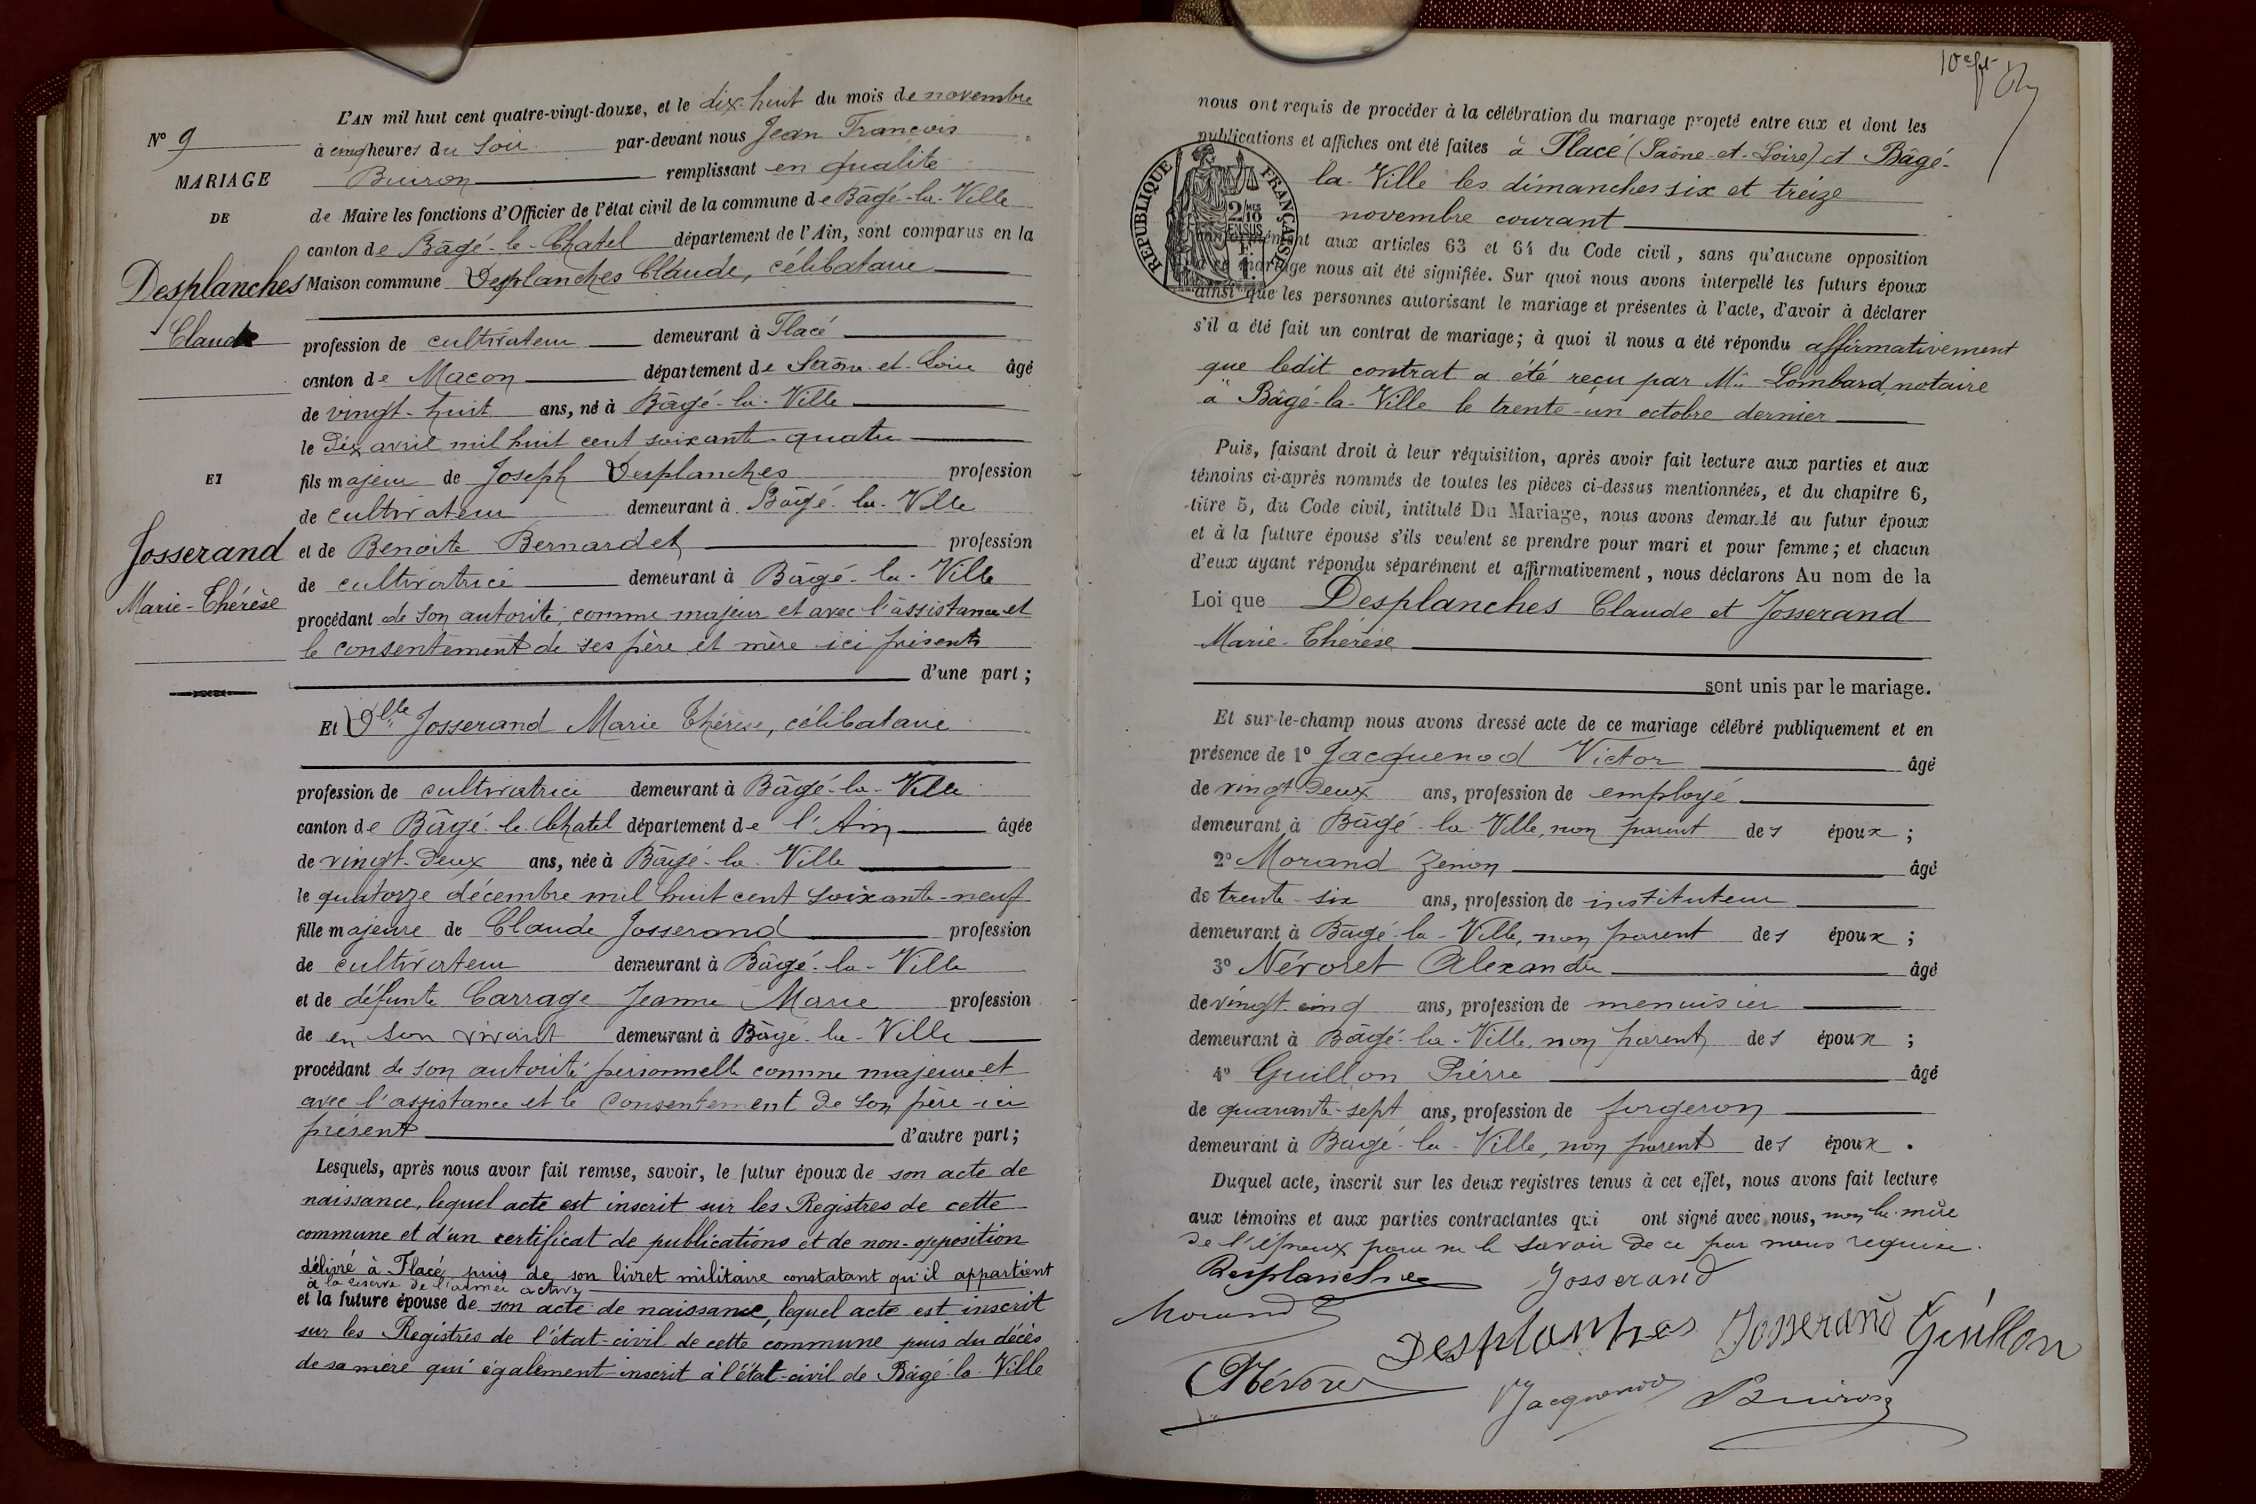 N° 9
MARIAGE
DE
Desplanches
Claude
ET
Josserand
Marie-Thérèse
L'AN mil huit cent quatre-vingt-douze, et le dix-huit du mois de novembre
à cinq heures du soir par-devant nous Jean François
Buiron remplissant en qualité
de Maire les fonctions d'Officier de l'état civil de la commune de Bâgé-la-Ville
canton de Bâgé-le-Chatel département de l'Ain, sont comparus en la
Maison commune Desplanches Claude, célibataire
profession de cultivateur demeurant à Flacé
canton de Macon département de Saône-et-Loire âgé
de vingt-huit ans, né à Bâgé-la-Ville
le dix avril mil huit cent soixante-quatre
fils majeur de Joseph Desplanches profession
de cultivateur demeurant à Bâgé-la-Ville
et de Benoite Bernardet profession
de cultivatrice demeurant à Bâgé-la-Ville
procédant de son autorité, comme majeur et avec l'assistance et
le consentement de ses père et mère ici présents
d'une part ;
Et Dlle Josserand Marie Thérèse, célibataire
profession de cultivatrice demeurant à Bâgé-la-Ville
canton de Bâgé-le-Chatel département de l'Ain âgée
de vingt-deux ans, née à Bâgé-la-Ville
le quatorze décembre mil huit cent soixante-neuf
fille majeure de Claude Josserand profession
de cultivateur demeurant à Bâgé-la-Ville
et de défunte Carrage Jeanne Marie profession
de en son vivant demeurant à Bâgé-la-Ville
procédant de son autorité personnelle comme majeure et
avec l'assistance et le consentement de son père ici
présent d'autre part ;
Lesquels, après nous avoir fait remise, savoir, le futur époux de son acte de
naissance, lequel acte est inscrit sur les Registres de cette
commune et d'un certificat de publications et de non-opposition
délivré à Flacé, puis de son livret militaire constatant qu'il appartient
à la réserve de l'armée active
et la future épouse de son acte de naissance, lequel acte est inscrit
sur les Registres de l'état-civil de cette commune puis du décès
de sa mère qui également inscrit à l'état-civil de Bâgé-la-Ville
nous ont requis de procéder à la célébration du mariage projeté entre eux et dont les
publications et affiches ont été faites à Flacé (Saône-et-Loire) et Bâgé-
la-Ville les dimanches six et treize
novembre courant
RÉPUBLIQUE FRANÇAISE
2 MES 10
EN SUS
aux articles 63 et 64 du Code civil, sans qu'aucune opposition
mariage nous ait été signifiée. Sur quoi nous avons interpellé les futurs époux
ainsi que les personnes autorisant le mariage et présentes à l'acte, d'avoir à déclarer
s'il a été fait un contrat de mariage; à quoi il nous a été répondu affirmativement
que ledit contrat a été reçu par Me Lombard, notaire
à Bâgé-la-Ville le trente-un octobre dernier
Puis, faisant droit à leur réquisition, après avoir fait lecture aux parties et aux
témoins ci-après nommés de toutes les pièces ci-dessus mentionnées, et du chapitre 6,
titre 5, du Code civil, intitulé Du Mariage, nous avons demandé au futur époux
et à la future épouse s'ils veulent se prendre pour mari et pour femme; et chacun
d'eux ayant répondu séparément et affirmativement, nous déclarons Au nom de la
Loi que Desplanches Claude et Josserand
Marie-Thérèse
sont unis par le mariage.
Et sur-le-champ nous avons dressé acte de ce mariage célébré publiquement et en
présence de 1° Jacquenod Victor âgé
de vingt deux ans, profession de employé
demeurant à Bâgé-la-Ville, non parent des époux ;
2° Morand Zénon âgé
de trente-six ans, profession de instituteur
demeurant à Bâgé-la-Ville, non parent des époux ;
3° Névoret Alexandre âgé
de vingt-cinq ans, profession de menuisier
demeurant à Bâgé-la-Ville, non parent des époux ;
4° Guillon Pierre âgé
de quarante-sept ans, profession de forgeron
demeurant à Bâgé-la-Ville, non parent des époux.
Duquel acte, inscrit sur les deux registres tenus à cet effet, nous avons fait lecture
aux témoins et aux parties contractantes qui ont signé avec nous, non la mère
de l'époux pour ne le savoir de ce par nous requise.
Desplanches Josserand
Morand Z
Desplanhes Josserand Guillon
Névoret Jacquenod Buiron